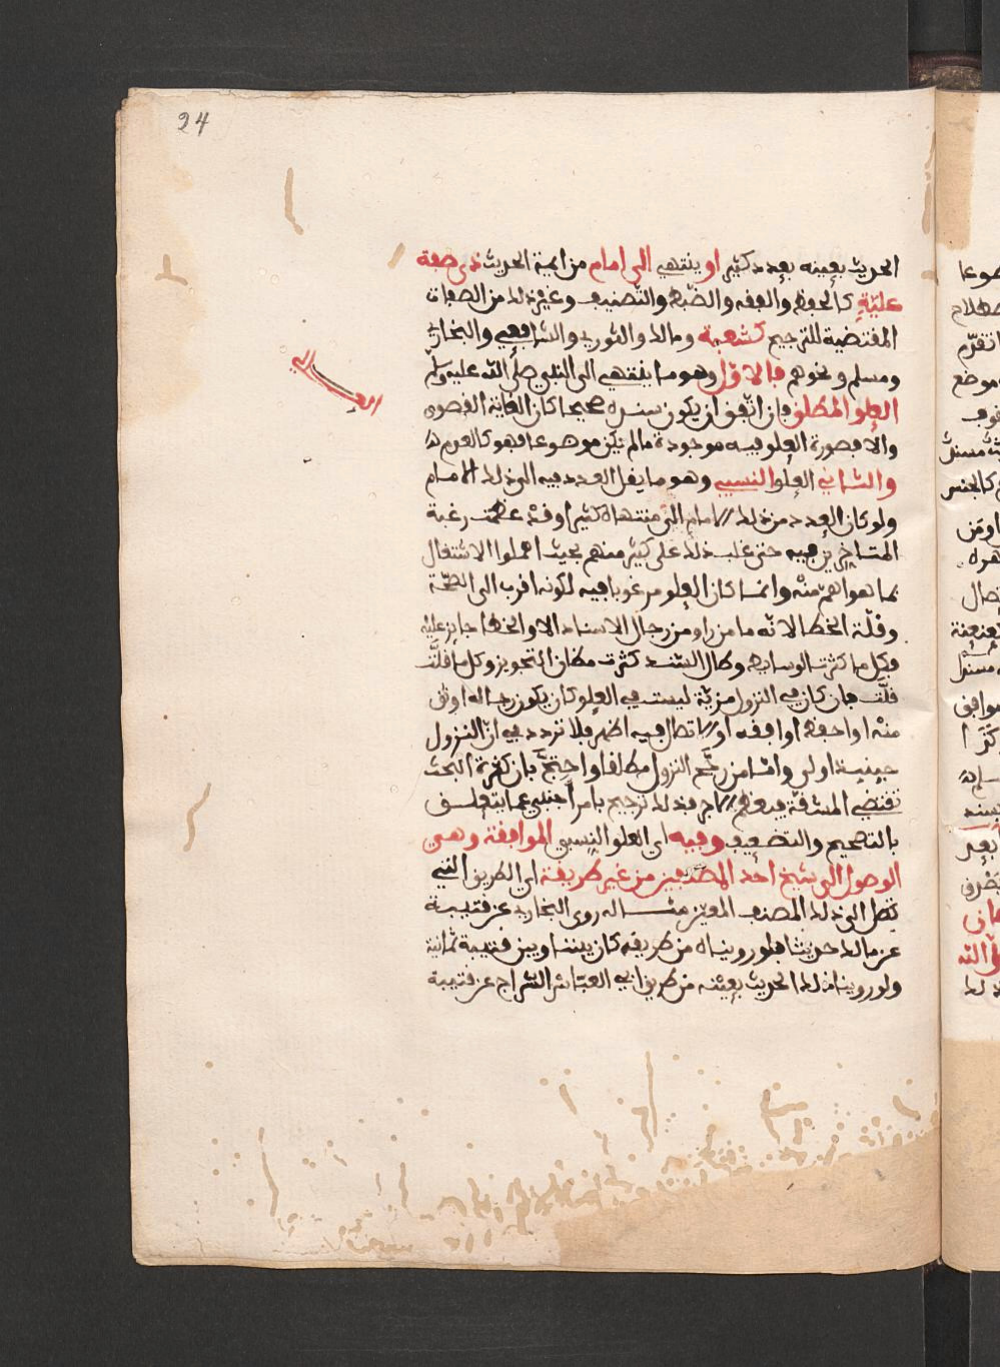 24
الحديث بعينه بعدد كثير او ينتهي الى امام من ايمة الحديث ذي صفة
علية كالحفظ والفقه والضبط والتصنيف وغير ذلك من الصفات
المقتضية للترجيح كشعبة ومالك والثوري والشافعي والبخاري
ومسلم ونحوهم فالاول وهو ما ينتهي الى النبي صلى الله عليه وسلم
العلو المطلق فان اتفق ان يكون سنده صحيحا كان الغاية القصوى
والا فصورة العلو فيه موجودة ما لم يكن موضوعا فهو كالعدم
والثاني العلو النسبي وهو ما يقل العدد فيه الى ذلك الامام
ولو كان العدد من ذلك الامام الى منتهاه كثيرا وقد عظمت رغبة
المتاخرين فيه حتى غلب ذلك على كثير منهم بحيث اهملوا الاشتغال
بما هو اهم منه وانما كان العلو مرغوبا فيه لكونه اقرب الى الصحة
وقلة الخطا لانه ما من راو من رجال الاسناد الا والخطا جايز عليه
فكل ما كثرت الوسايط وطال السند كثرت مظان التجويز وكل ما قلت
قلت فان كان في النزول مزية ليست في العلو كان يكون رجاله اوثق
منه او احفظ او افقه او الاتصال فيه اظهر فلا تردد في ان النزول
حينيذ اولى واما من رجح النزول مطلقا واحتج بان كثرة البحث
تقتضي المشقة فيعظم الاجر فذلك ترجيح بامر اجنبي عما يتعلق
بالتصحيح والتضعيف وفيه اي العلو النسبي الموافقة وهي
الوصول الى شيخ احد المصنفين من غير طريقه اي الطريق التي
تصل الى ذلك المصنف المعين مثاله روى البخاري عن قتيبة
عن مالك حديثا فلو رويناه من طريقه كان بيننا وبين قتيبة ثمانية
ولو روينا ذلك الحديث بعينه من طريق ابي العباس السراج عن قتيبة